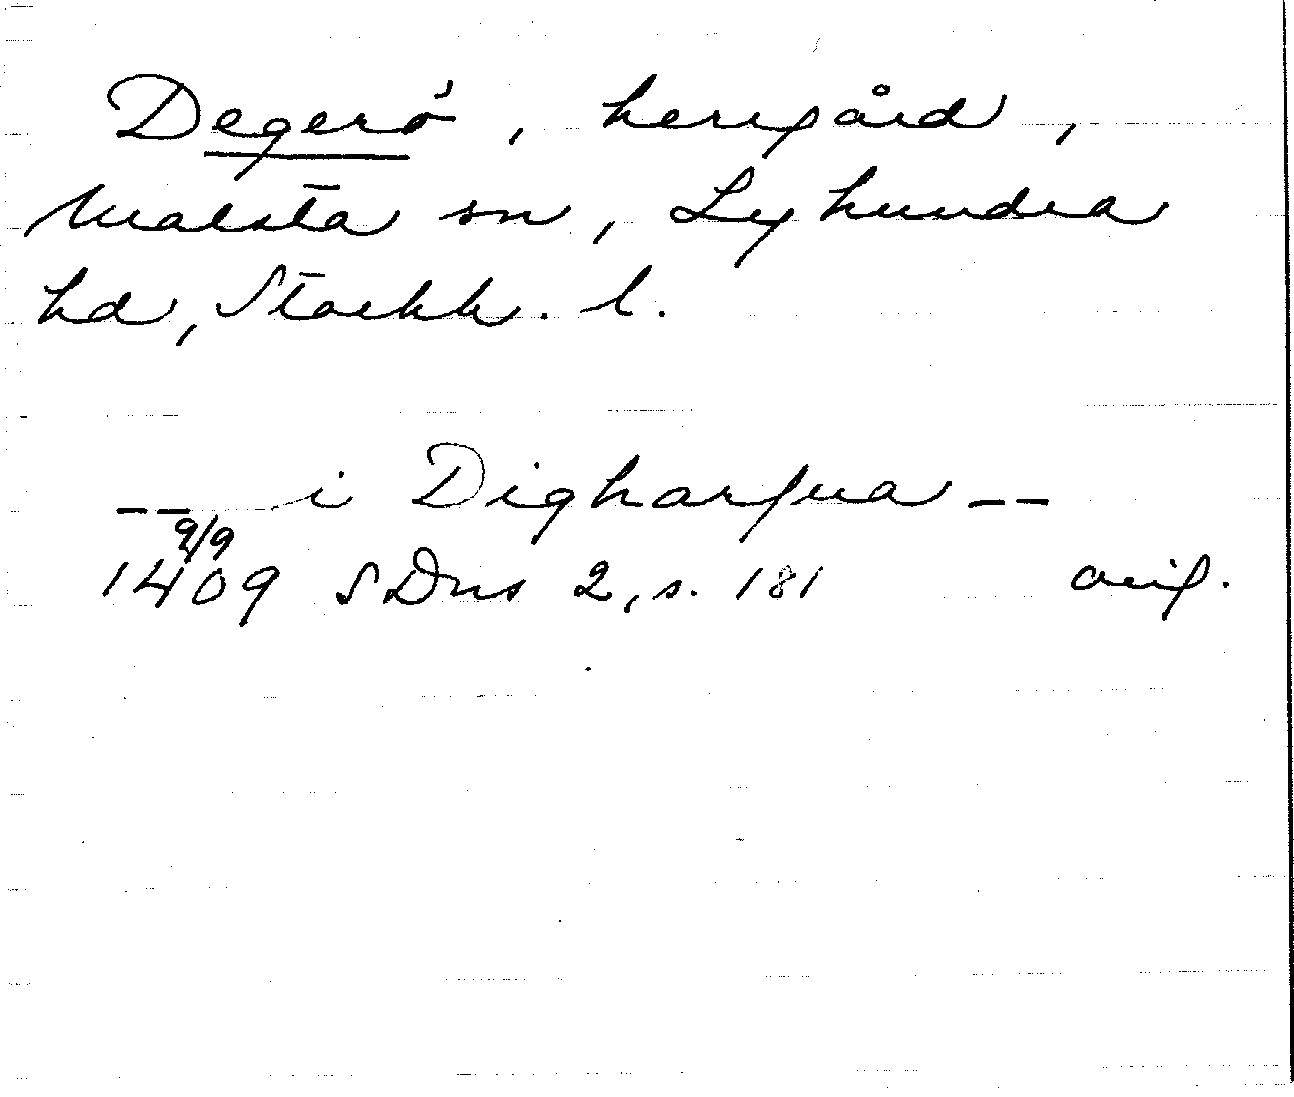 Degerö, herrgård,
Malsta sn, Lyhundra
hd, Stockh. l.
-- i Digharøua --
9/9
1409 SDns 2, s. 181 orig.